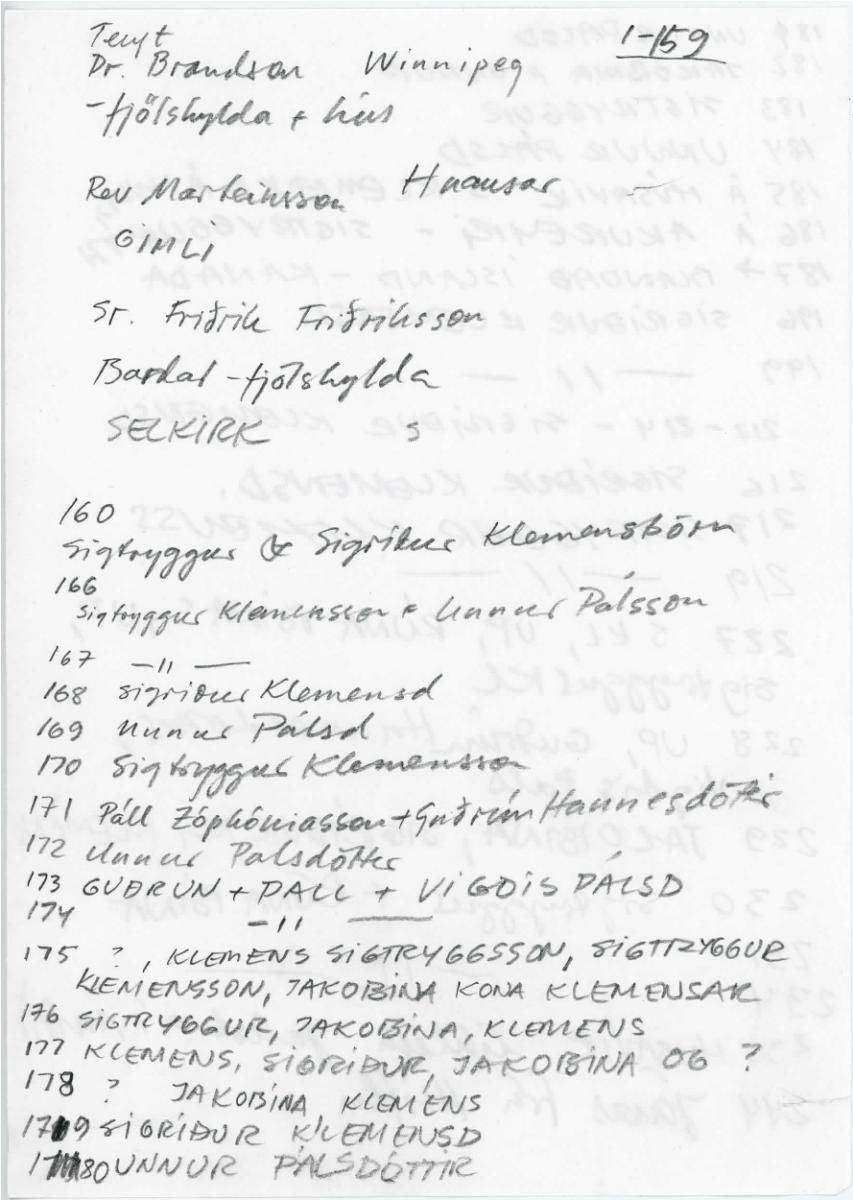 1-159
Dr. Brandson Winnipeg
-fjölskylda + hús
Rev Marteinsson Hnausar
GIMLI
Sr. Friðrik Friðriksson
Bardal - fjölskylda
SELKIRK s
160
Sigtryggur & Sigríður Klemensbörn
166
Sigtryggur Klemensson + Unnur Pálsson
167 -"-
168 Sigríður Klemensd
169 Unnur Pálsd
170 Sigtryggur Klemensson
171 Páll Zóphóníasson + Guðrún Hannesdóttir
172 Unnur Pálsdóttir
173 GUÐRÚN + PÁLL + VIGDÍS PÁLSD
174 -"-
175 ?, KLEMENS SIGTRYGGSSON, SIGTRYGGUR
KLEMENSSON, JAKOBÍNA KONA KLEMENSAR
176 SIGTRYGGUR, JAKOBÍNA, KLEMENS
177 KLEMENS, SIGRÍÐUR, JAKOBÍNA OG ?
178 ? JAKOBÍNA, KLEMENS
179 SIGRÍÐUR KLEMENSD
180 UNNUR PÁLSDÓTTIR